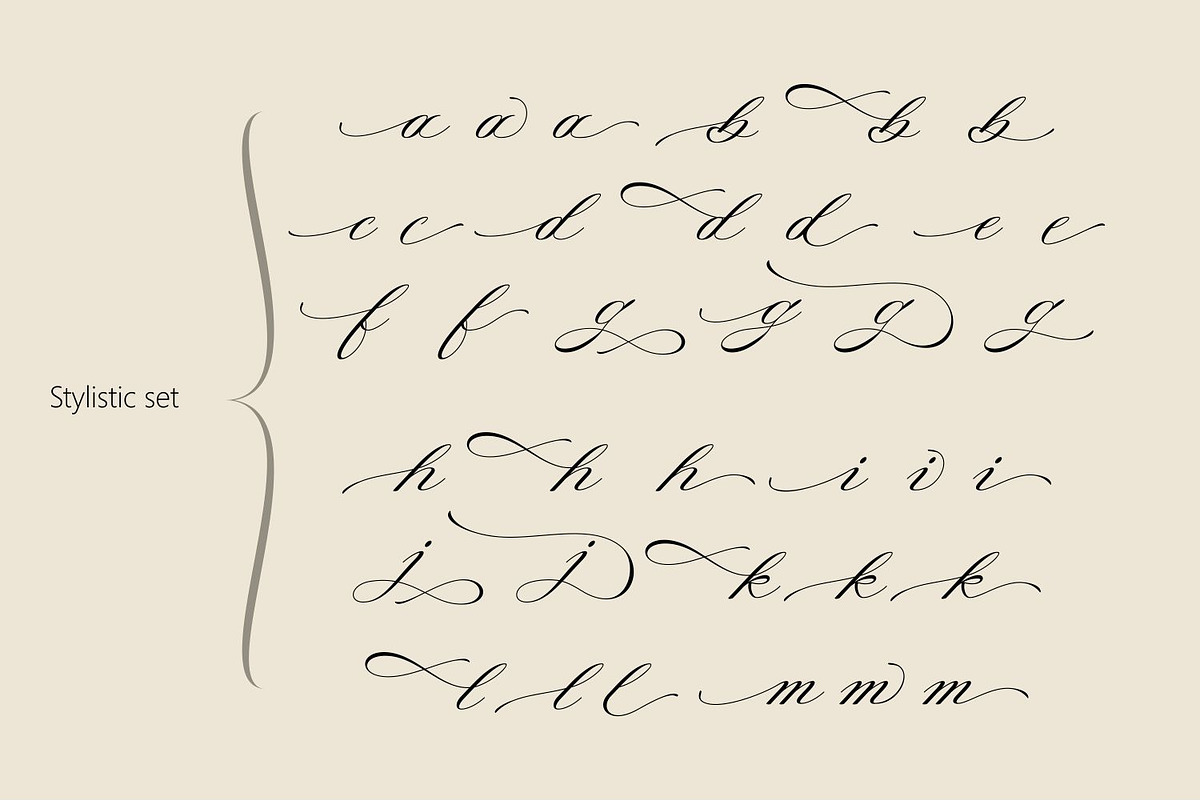 a a a b b b
c c d d d e e
f f g g g g
Stylistic set
h h h i i i
j j k k k
l l l m m m